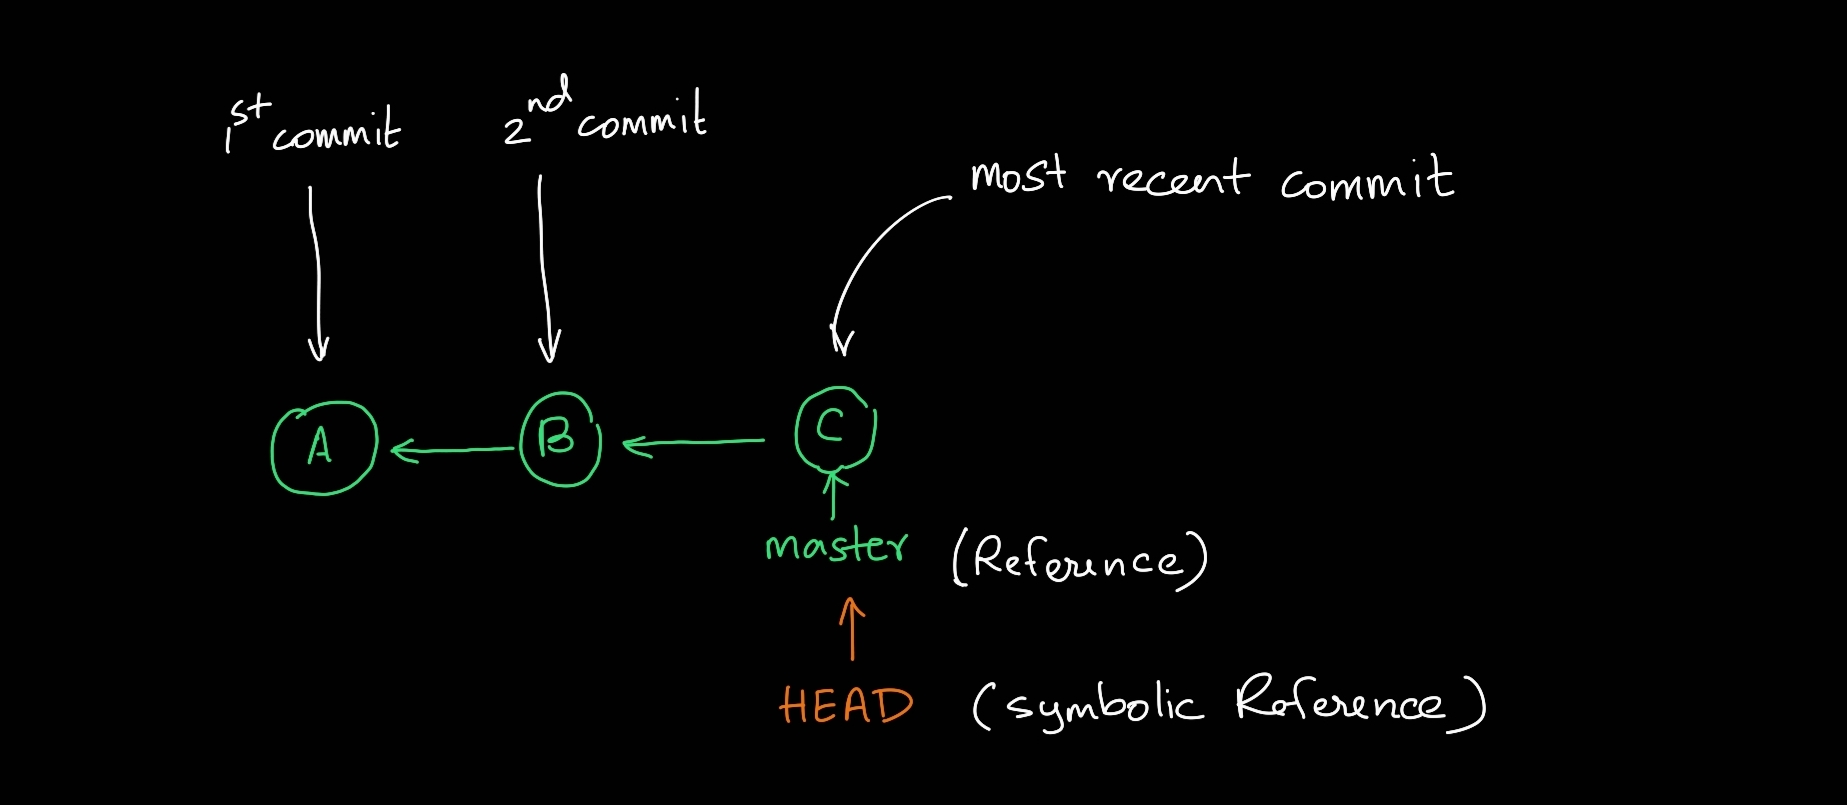 1st commit
2nd commit
most recent commit
A
B
C
master (Reference)
HEAD (symbolic Reference)